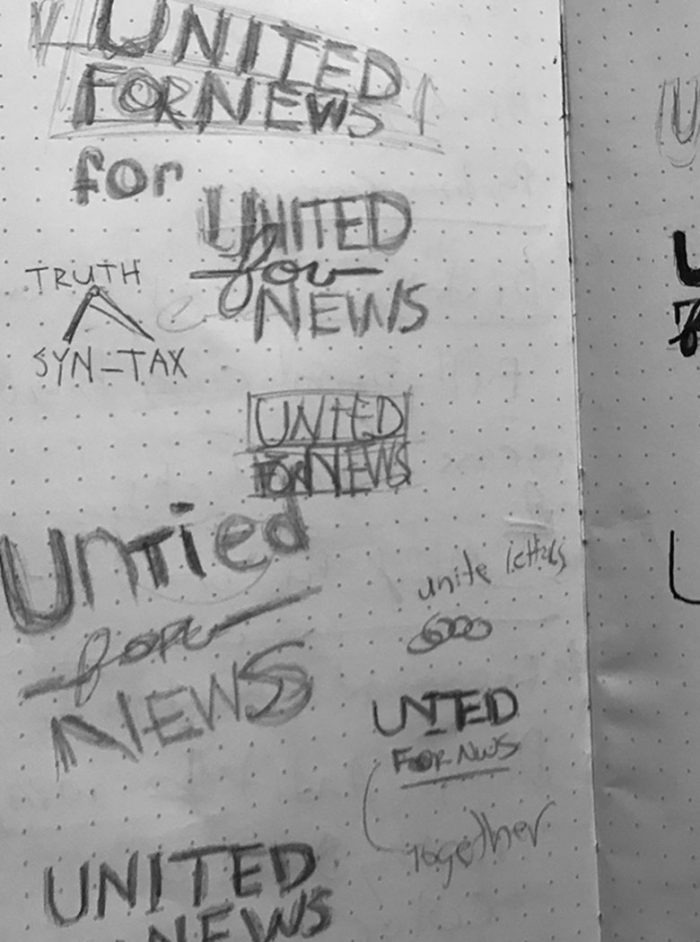 UNITED
FORNEWS
for
UNITED
for
NEWS
TRUTH
SYN-TAX
UNITED
FORNEWS
Untied
for
NEWS
unite letters
UNTED
FOR NWS
Together
UNITED
NEWS
U